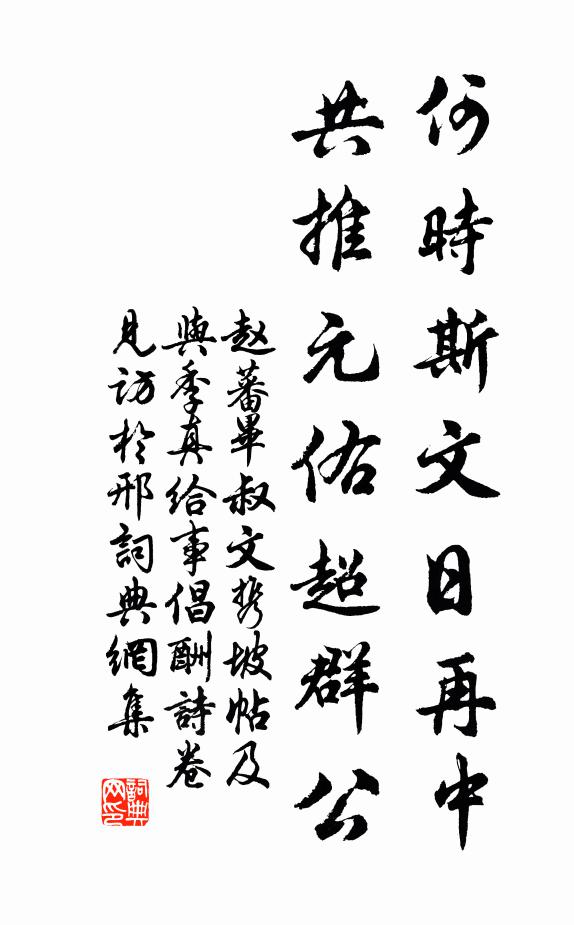 何時斯文日再中
共推元佑超群公
赵蕃畢叔文携坡帖及
與季真給事倡酬詩卷
見訪於邢詞典網集
詞典网印